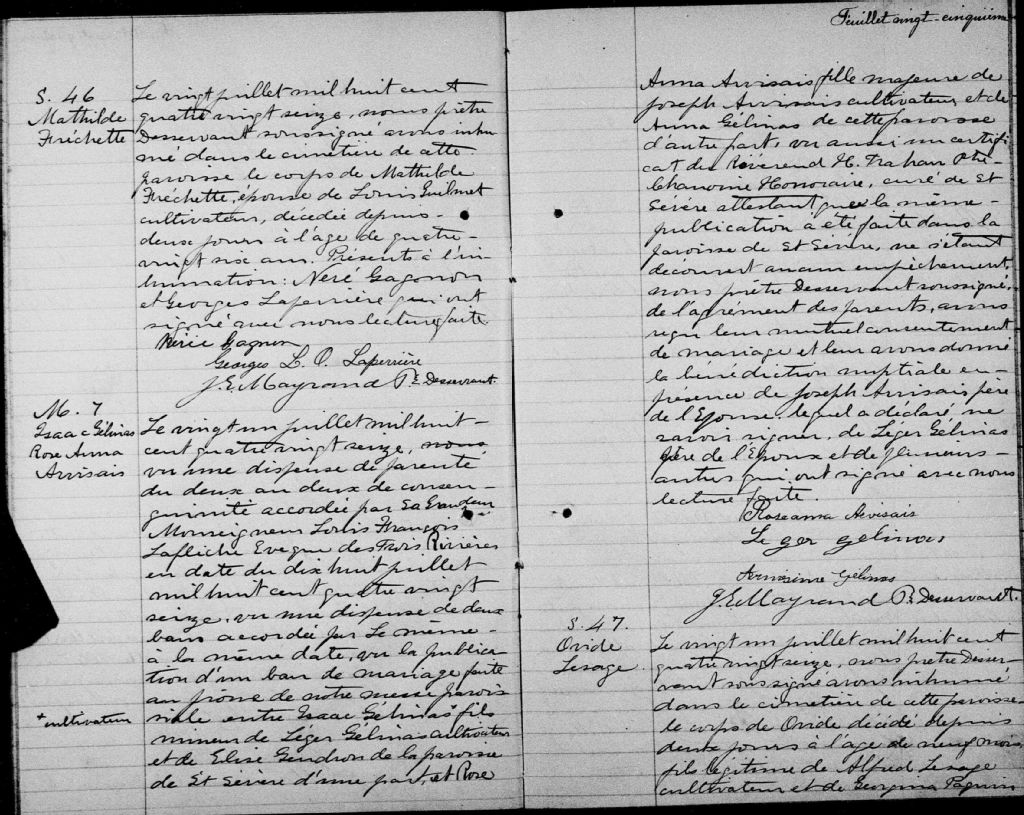 Feuillet vingt-cinquième
S. 46
Mathilde
Fréchette
Le vingt juillet mil huit cent
quatre vingt seize, nous prêtre
Desservant soussigné avons inhu-
mé dans le cimetière de cette
paroisse le corps de Mathilde
Fréchette, épouse de Louis Guilmet
cultivateur, décédée depuis
deux jours à l'age de quatre-
vingt six ans. Présents à l'in-
humation: Neré Gagnon
et Georges Laperrière qui ont
signé avec nous lecture faite
Nérée Gagnon
Georges L. O. Laperrière
J. E. Mayrand Ptre Desservant
M. 7
Isaac Gélinas
Rose Anna
Arvisais
Le vingt un juillet mil huit-
cent quatre vingt seize, nous
vu une dispense de parenté
du deux au deux de consan-
guinité accordée par Sa Grandeur
Monseigneur Louis François
Laflèche Evêque des Trois Rivières
en date du dix huit juillet
mil huit cent quatre vingt
seize, vu une dispense de deux
bans accordée par Le même-
à la même date, vu la publica-
tion d'un ban de mariage faite
au prône de notre messe parois-
siale entre Isaac Gélinas + fils
+ cultivateur
mineur de Léger Gélinas cultivateur
et de Elise Gendron de la paroisse
de St Sévère d'une part, et Rose
Anna Arvisais fille majeure de
Joseph Arvisais cultivateur et de
Anna Gélinas de cette paroisse
d'autre part, vu aussi un certifi-
cat du Révérend H. Trahan Ptre
Chanoine Honoraire, curé de St
Sévère attestant que la même-
publication a été faite dans la
paroisse de St Sévère, ne s'étant
découvert aucun empêchement,
nous prêtre Desservant soussigné,
de l'agrément des parents, avons
reçu leur mutuel consentement
de mariage et leur avons donné
la bénédiction nuptiale en-
présence de Joseph Arvisais père
de l'Epouse lequel a déclaré ne
savoir signer, de Léger Gélinas
père de l'Epoux et de plusieurs-
autres qui ont signé avec nous
lecture faite.
Roseanna Arvisais
Leger gelinas
Gélinas
J. E. Mayrand Ptre Desservant.
S. 47.
Ovide
Lesage
Le vingt un juillet mil huit cent
quatre vingt seize, nous prêtre Desser-
vant soussigné avons inhumé
dans le cimetière de cette paroisse
le corps de Ovide décédé depuis
deux jours à l'age de neuf mois,
fils légitime de Alfred Lesage
cultivateur et de Georgina Paquin